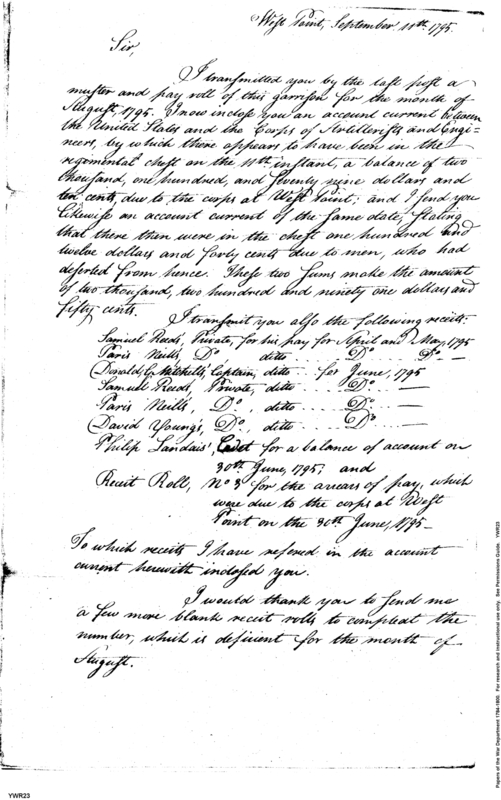 West Point, September 11th. 1795.
Sir,
I transmitted you by the last post a
muster and pay roll of this garrison for the month of
August, 1795. I now inclose you an account current between
the United States and the Corps of Artillerists and Engi=
neers, by which there appears to have been in the
regimental chest on the 11th instant, a balance of two
thousand, one hundred, and seventy nine dollars and
ten cents, due to the corps at West Point; and I send you
likewise an account current of the same date, stating
that there then were in the chest one hundred and
twelve dollars and forty cents due to men, who had
deserted from hence. These two sums make the amount
of two thousand, two hundred and ninety one dollars and
fifty cents.
I transmit you also the following receits:
Samuel Reeds, Private, for his pay for April and May, 1795
Paris Neills, Do, ditto .... Do .... Do —
Donald G. Mitchell's, Captain, ditto ... for June, 1795
Samuel Reeds, Private, ditto .... Do —
Paris Neills, Do, ditto .... Do —
David Young's, Do, ditto .... Do —
Philip Landais', Cadet for a balance of account on
30th June, 1795. and
Receit Roll, No 3 for the arrears of pay, which
were due to the corps at West
Point on the 30th June, 1795—
To which receits I have refered in the account
current herewith inclosed you.
I would thank you to send me
a few more blank receit rolls to compleat the
number, which is deficient for the month of
August.
Papers of the War Department 1784-1800. For research and instructional use only. See Permissions Guide. YWR23
YWR23